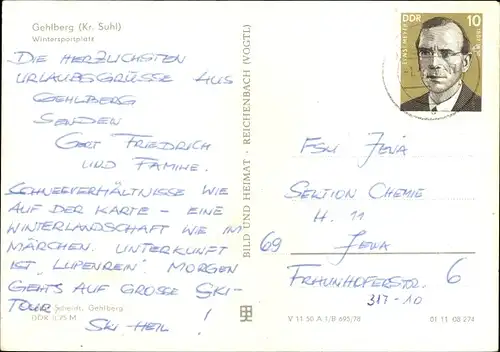 Gehlberg (Kr. Suhl)
Wintersportplatz
DIE HERZLICHSTEN
URLAUBSGRÜSSE AUS
GEHLBERG
SENDEN
GERT FRIEDRICH
UND FAMILIE.
SCHNEEVERHÄLTNISSE WIE
AUF DER KARTE - EINE
WINTERLANDSCHAFT WIE IM
MÄRCHEN. UNTERKUNFT
IST „LUPENREIN". MORGEN
GEHTS AUF GROSSE SKI-
TOUR !
SKI-HEIL
Gehlberg
BILD UND HEIMAT - REICHENBACH (VOGTL)
DDR 10
FSU JENA
SEKTION CHEMIE
H. 11
69 JENA
FRAUNHOFERSTR. 6
317-10
V 11 50 A 1/B 695/78 01 11 08 274